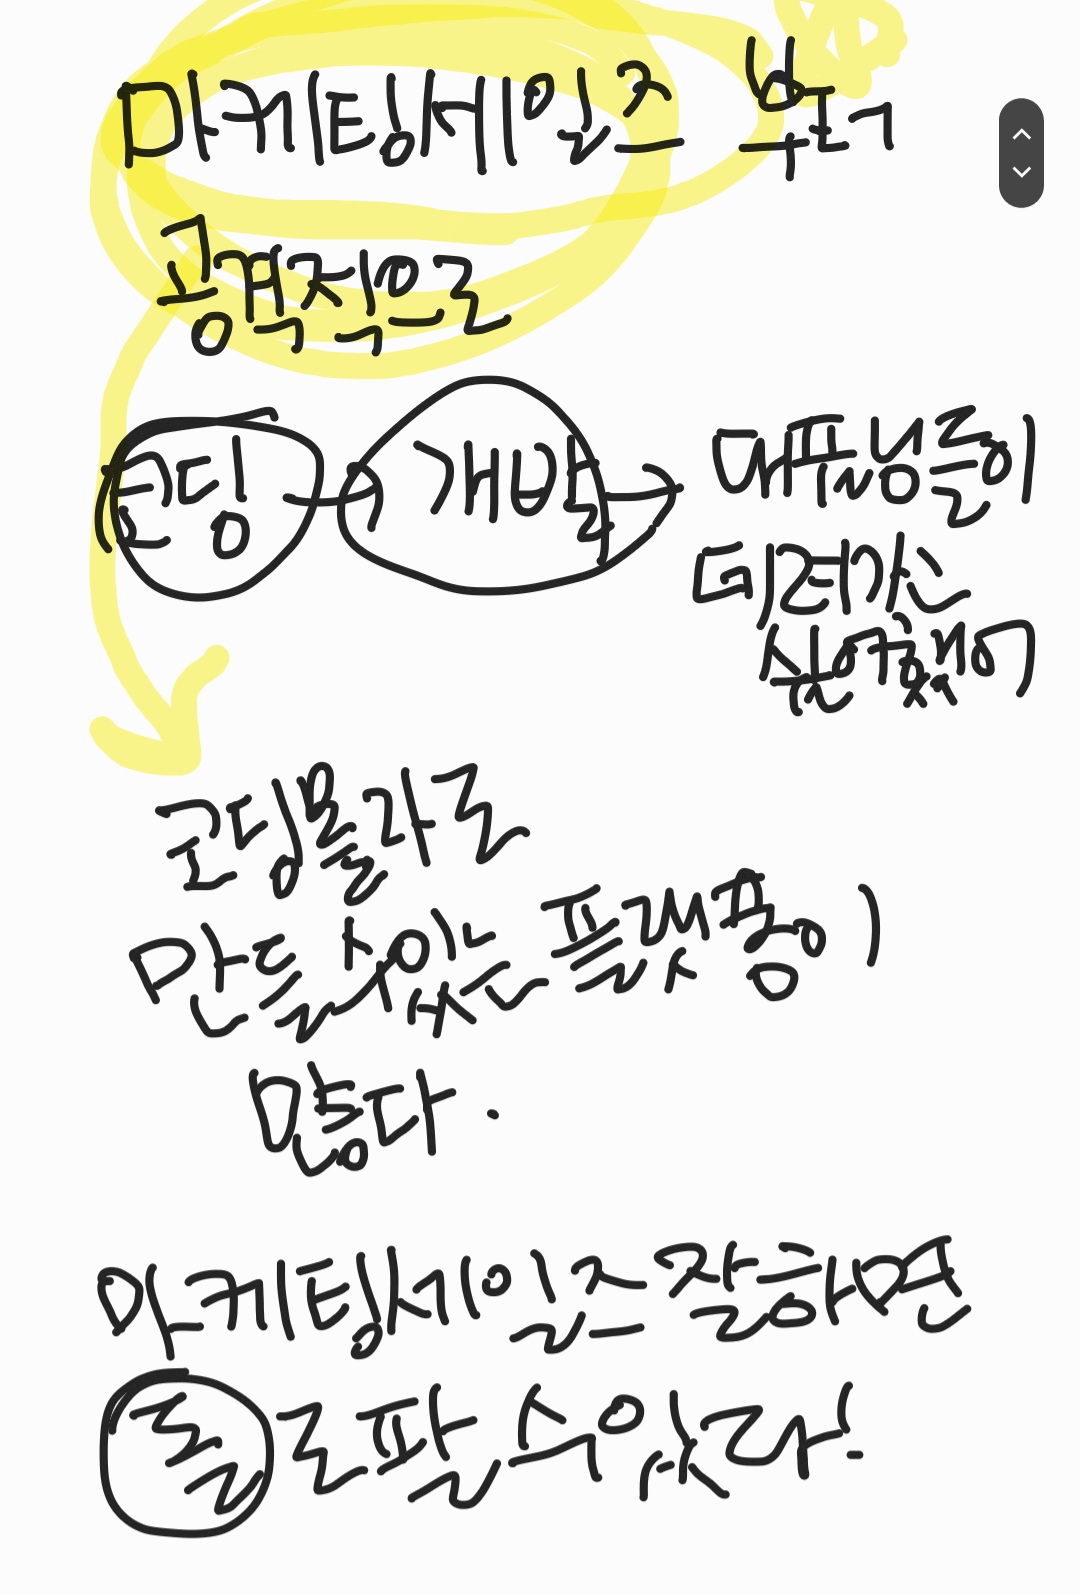 마케팅세일즈 부터
공격적으로
코딩 → 개발 → 대표님들이
데려가
코딩몰라도
만들수있는 플랫폼이
많다.
마케팅세일즈잘하면
돌로팔수있다!